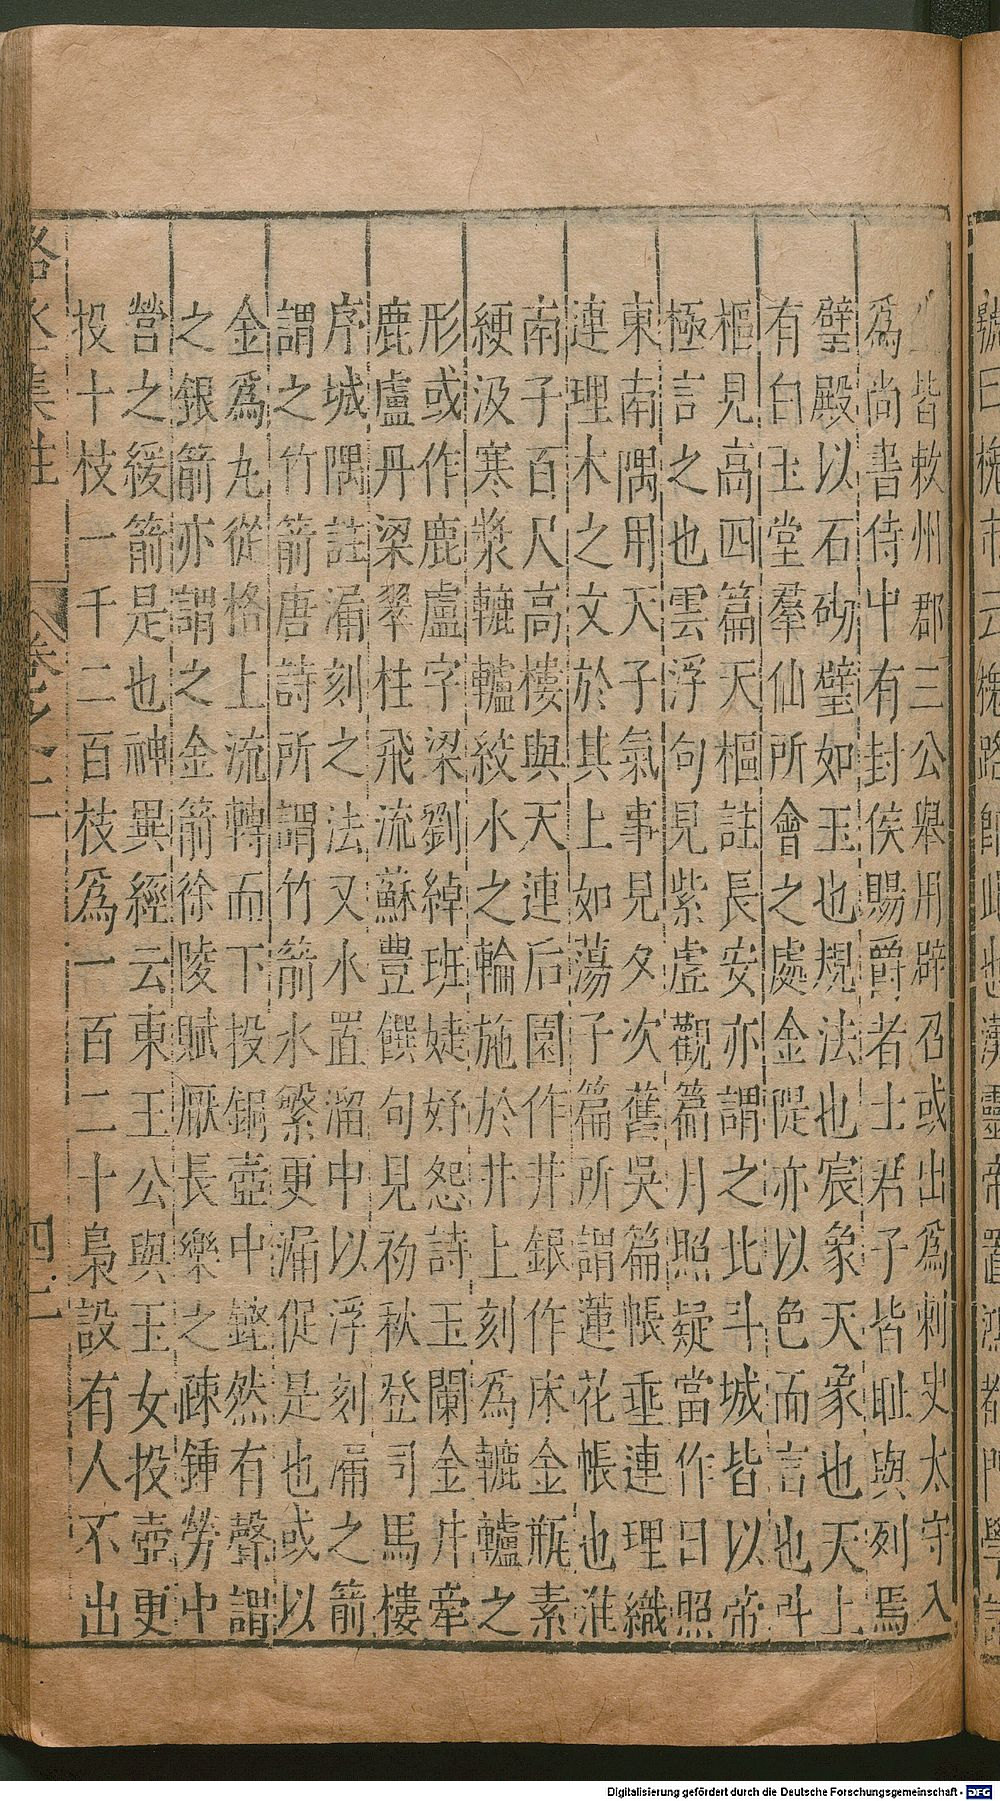 皆敕州郡三公舉用辟召或出爲刺史太守入
爲尚書侍中有封侯賜爵者士君子皆耻與列焉
璧殿以石砌璧如玉也規法也宸象天象也天上
有白玉堂羣仙所會之處金隄亦以色而言也斗
樞見高四篇天樞註長安亦謂之北斗城皆以帝
極言之也雲浮句見紫虛觀篇月照疑當作日照
東南隅用天子氣事見夕次舊吳篇帳垂連理織
連理木之文於其上如蕩子篇所謂蓮花帳也淮
南子百尺高樓與天連后園作井銀作床金瓶素
綆汲寒漿轆轤絞水之輪施於井上刻爲轆轤之
形或作鹿盧字梁劉綽班婕妤怨詩玉闌金井牽
鹿盧丹梁翠柱飛流蘇豊饌句見礿秋登司馬樓
序城隅註漏刻之法又水置溜中以浮刻漏之箭
謂之竹箭唐詩所謂竹箭水繁更漏促是也或以
金爲丸從格上流轉而下投銅壺中鏗然有聲謂
之銀箭亦謂之金箭徐陵賦厭長樂之疎鍾勞中
營之緩箭是也神異經云東王公與玉女投壺更
投十枝一千二百枝爲一百二十梟設有人不出
卷之二
號曰槐市云槐路
也漢靈帝置鴻都門學
Digitalisierung gefördert durch die Deutsche Forschungsgemeinschaft - DFG